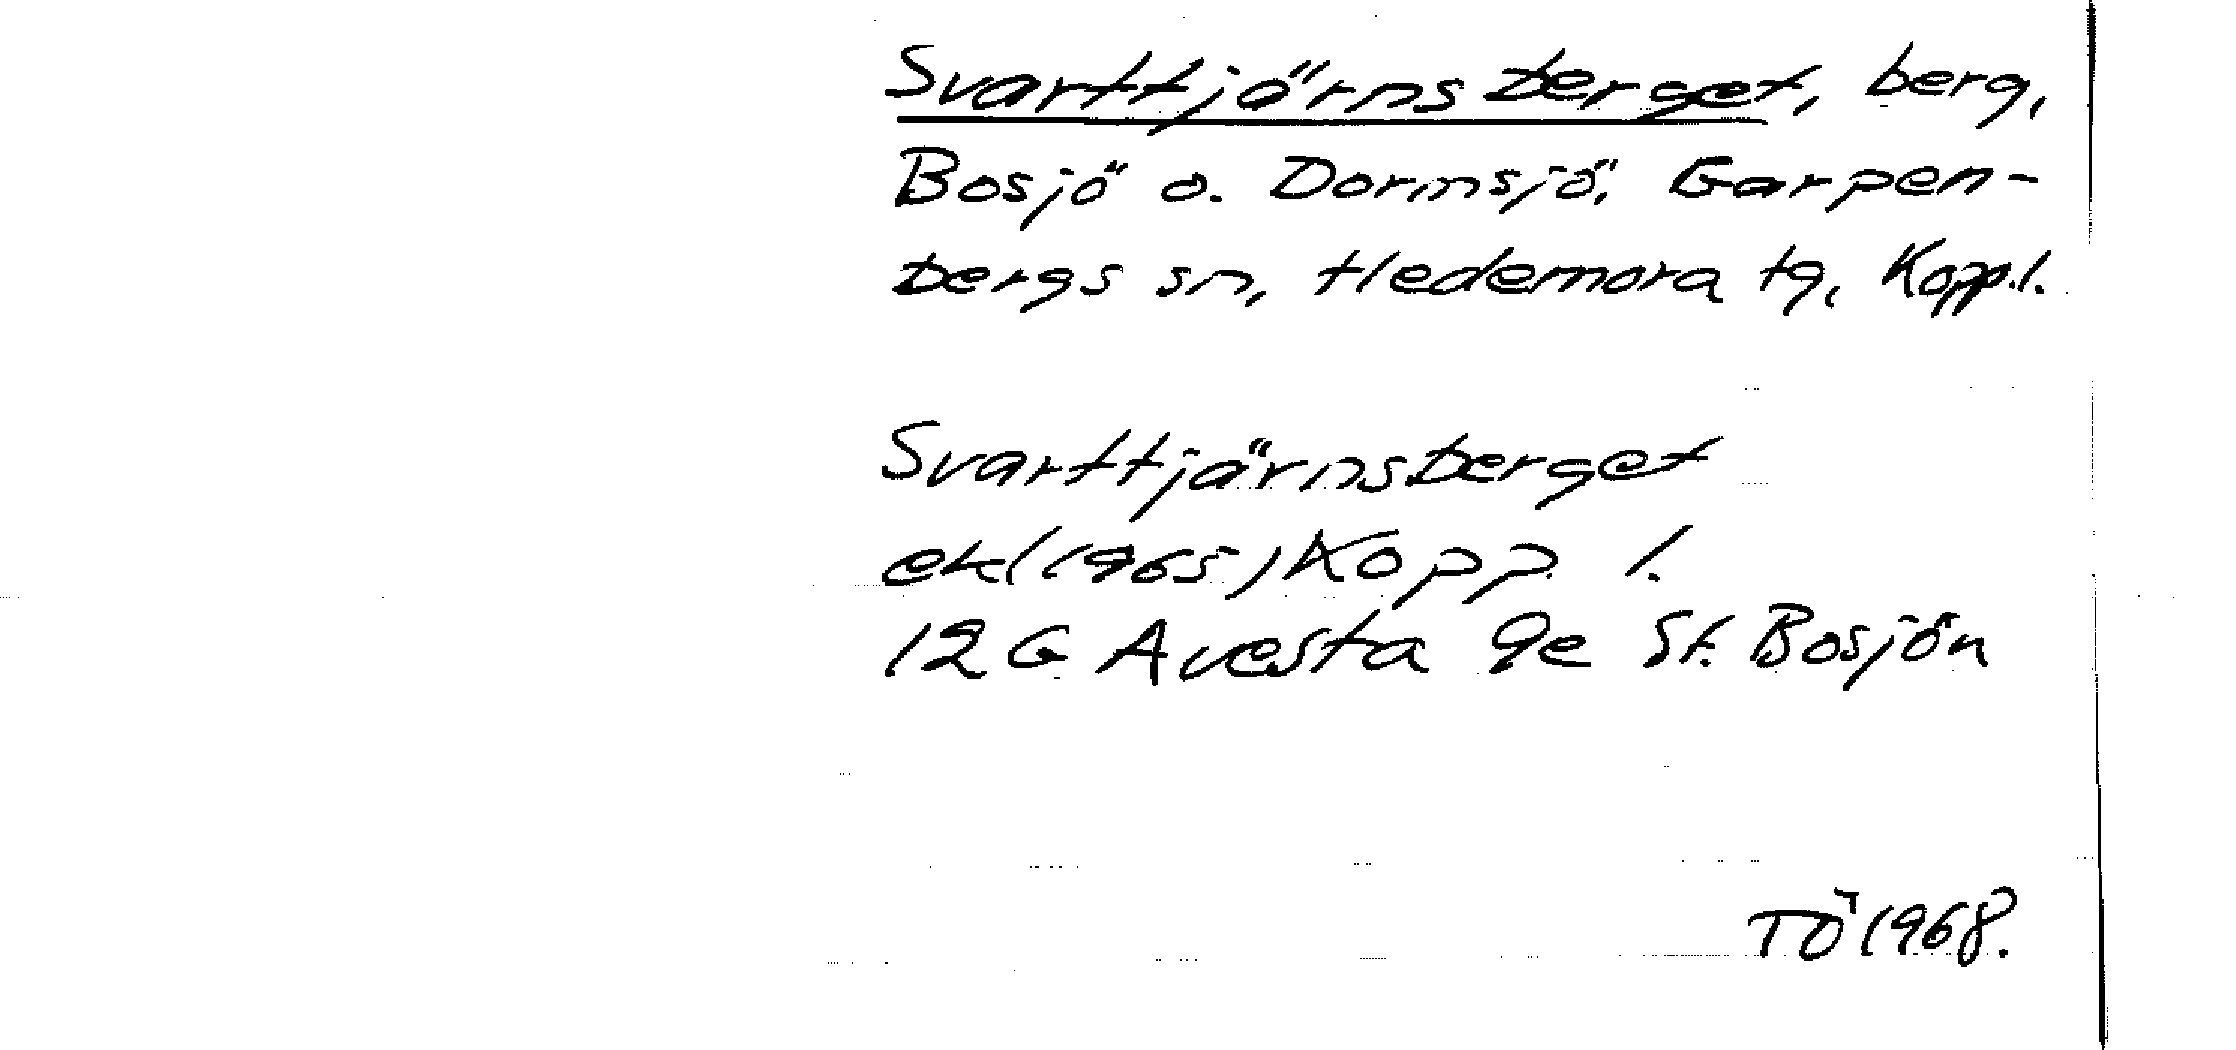 Svarttjärnsberget, berg,
Bosjö o. Dormsjö, Garpen-
bergs sn, Hedemora tg, Kopp.l.
Svarttjärnsberget
ek(1965) Kopp. l.
12G Avesta 9e St. Bosjön
TÖ 1968.